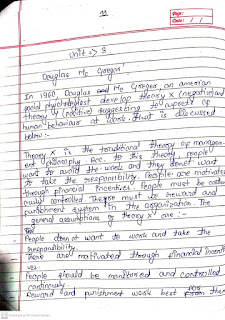 11
Page:
Date: / /
Unit :-> 3.
Douglas Mc Gregor
In 1960, Douglas Mc Gregor, an american
social psychologist develop theory X (negative) and
theory y (positive) suggesting to aspect of
human behaviour at work that is discussed
below -
Theory X is the traditional theory of managem-
ent philosophy. Acc. to this theory people
want to avoid the work and they donot want
to take the responsibility. People are motivated
through financial incentives. People must be
controlled. There must be reward and
punishment system in the organization. The
general assumptions of theory 'x' are :-
People donot want to work and take the
responsibility.
are motivated through financial incenti
ves.
People should be monitored and controlled
continuously.
Reward and punishment work best for them